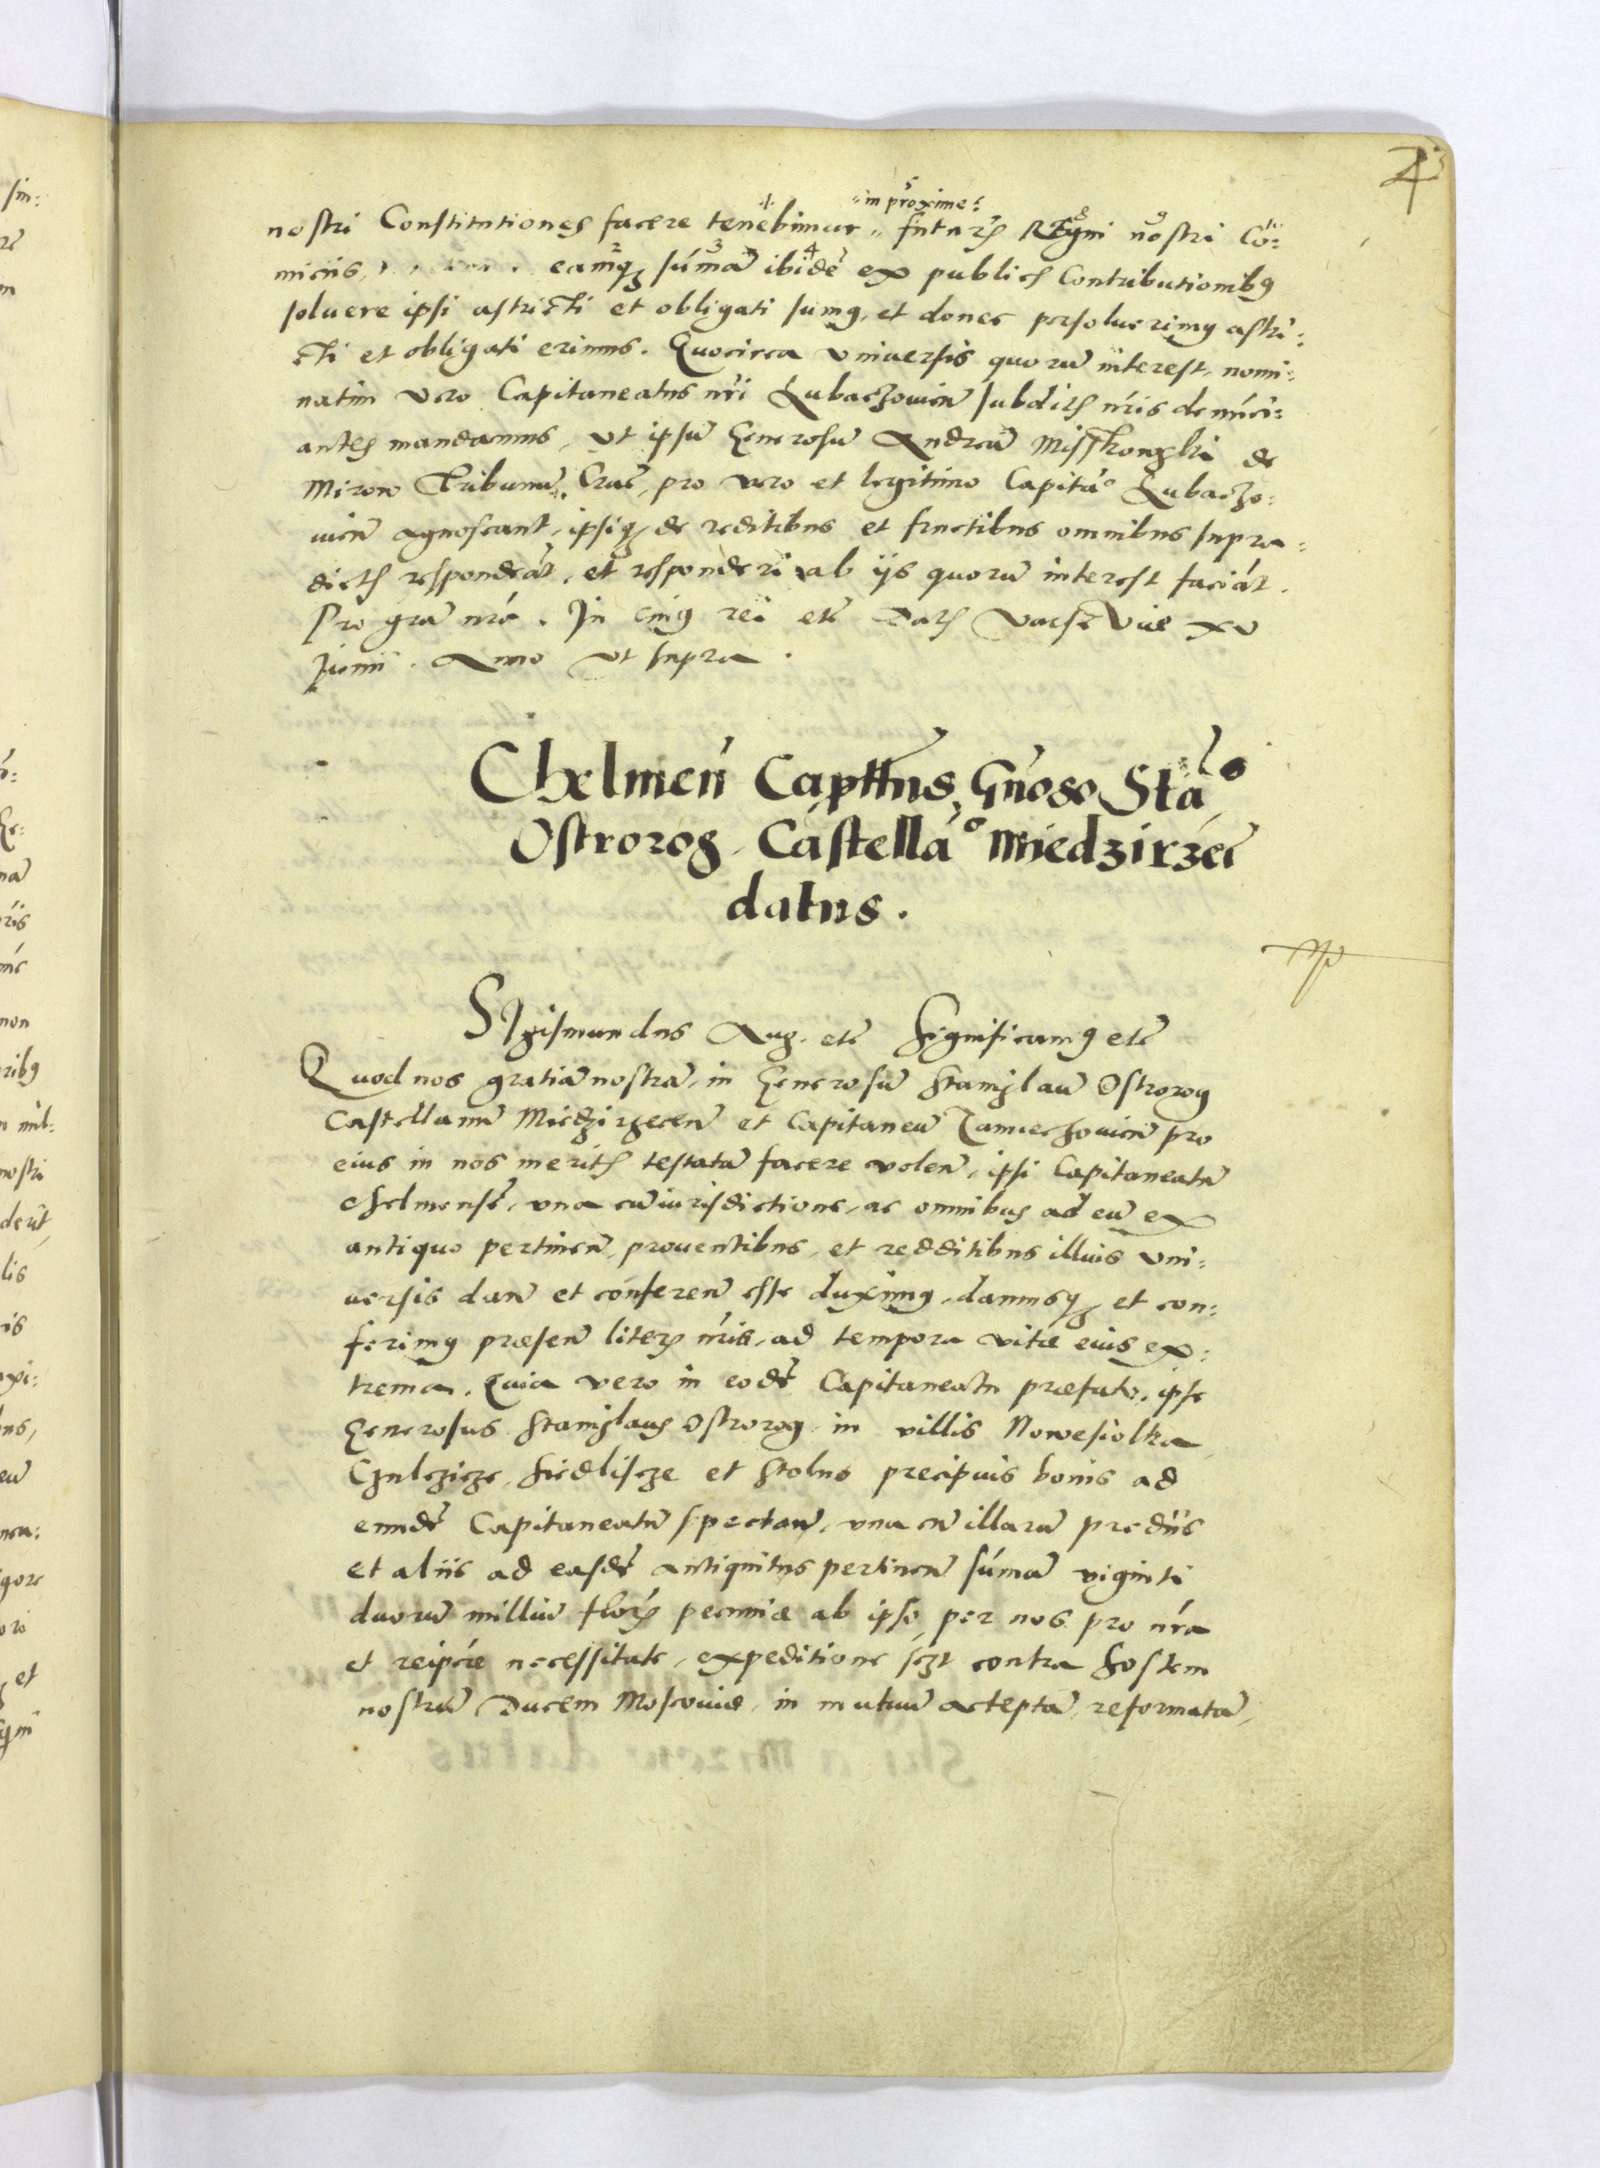 nostri Constitutiones facere tenebimur in proxime futuris Regni nostri Co:
miciis, eamq3 sumã ibidẽ ex publicis Contributionibus
soluere ipsi astricti et obligati sumus, et donec persoluerimus astri:
cti et obligati erimus. Quocirca vniuersis quorũ interest, nomi:
natim vero Capitaneatus nri Lubaczouien subditis nris denunci:
antes mandamus, vt ipsũ Generosũ Andreã de
Mirow Tribunũ, Crac, pro vero et legitimo Capitã° Lubaczo:
uien agnoscant, ipsiq3 de reditibus et fructibus omnibus supra:
dictis respondeãt, et responderi ab ijs quorũ interest faciãt.
Pro grã nrã. In cuius rei etc Datis Varsoviae xv
Junii. Anno vt supra.
Chelmen Capttus Gnoso Sta°
Ostrorog, Castellã° Miedzirzec
datus.
SIgismundus Aug. etc Significamus etc
Quod nos gratiã nostrã, in Generosũ Stanislaũ Ostrorog
Castellanũ Miedzirzecen et Capitaneũ pro
eius in nos meritis testatã facere volen, ipsi Capitaneatũ
Chelmensẽ, vna cũ iurisdictione, ac omnibus ad eũ ex
antiquo pertinen, prouentibus, et redditibus illius vni:
uersis dan et conferen esse duximus, damusq3 et con:
ferimus praesen literis nris, ad tempora vitae eius ex:
trema. Quia vero in eodẽ Capitaneatu praefato, ipse
Generosus Stanislaus Ostrorog in villis Nowesiolka
Czulczize, Siedliscze et Stolno precipuis bonis ad
eundẽ Capitaneatũ spectan, vna cũ illarũ prediis
et aliis ad easdẽ antiquitus pertinen sumã viginti
duorũ milliũ floris pecuniae ab ipso, per nos pro nra
et reipcae necessitate, expeditione sczt contra hostem
nostrũ Ducem Moscouiae, in mutuũ acceptã, reformatã,